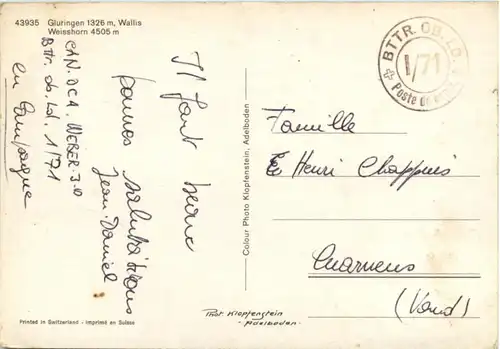 43935 Gluringen 1326 m, Wallis
Weisshorn 4505 m
CAN. DCA. WEBER. J.D
Bttr. ob. ld. 1/71
en Campagne
Il fait beau
bonnes salutations
Jean-Daniel
Printed in Switzerland - Imprimé en Suisse
Colour Photo Klopfenstein, Adelboden
Phot. Klopfenstein
-Adelboden-
BTTR. OB. LD.
I/71
Poste de
Famille
Henri Chappuis
Cuarnens
(Vaud)